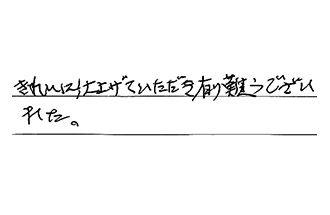 きれいに仕上げていただき有り難うござい
ました。